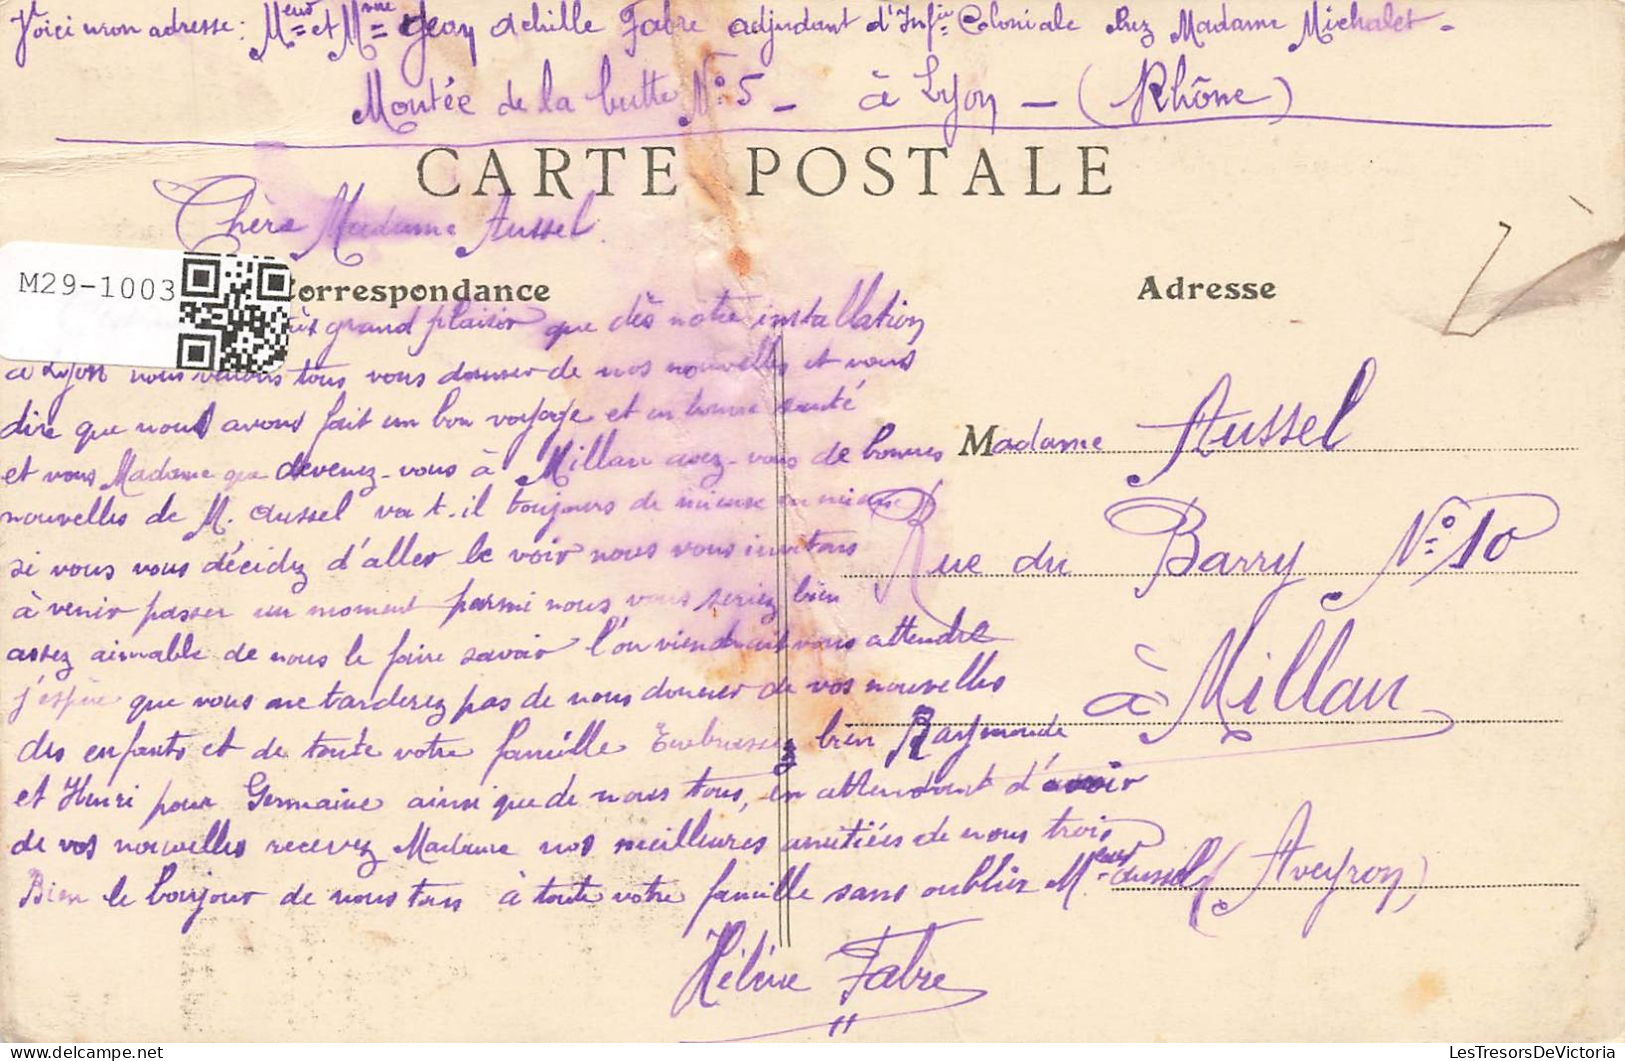 Voici mon adresse: Meur et Mme Jean Achille Fabre adjudant d'Infie Coloniale chez Madame Michalet -
Montée de la butte No 5 - à Lyon - (Rhône)
CARTE POSTALE
Chère Madame Aussel
M29-1003
Correspondance
Adresse
grand plaisir que dès notre installation
a Lyon nous venons tous vous donner de nos nouvelles et vous
dire que nous avons fait un bon voyage et en bonne santé
et vous Madame que devenez-vous à Millau avez-vous de bonnes
nouvelles de M. Aussel va t-il toujours de mieux en mieux
si vous vous décidez d'aller le voir nous vous invitons
à venir passer un moment parmi nous vous seriez bien
assez aimable de nous le faire savoir l'on viendrait vous attendre
j'espère que vous ne tarderez pas de nous donner de vos nouvelles
des enfants et de toute votre famille Embrassez bien Raymonde
et Henri pour Germaine ainsi que de nous tous, en attendant d'avoir
de vos nouvelles recevez Madame nos meilleures amitiées de nous trois
Bien le bonjour de nous tous à toute votre famille sans oublier Meur Aussel
Hélène Fabre
Madame Aussel
Rue du Barry No 10
à Millau
(Aveyron)
LesTresorsDeVictoria